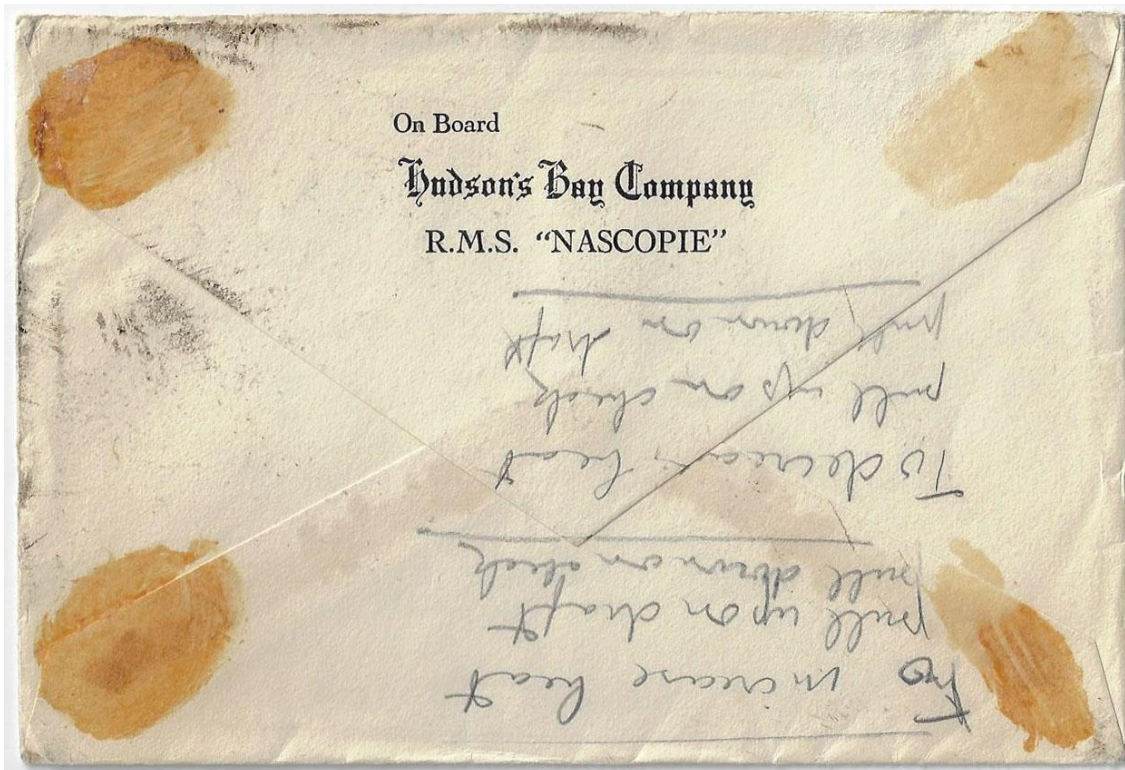 On Board
Hudson's Bay Company
R.M.S. “NASCOPIE”
To increase heat
pull up on draft
pull down on check
To decrease heat
pull up on check
pull down on draft